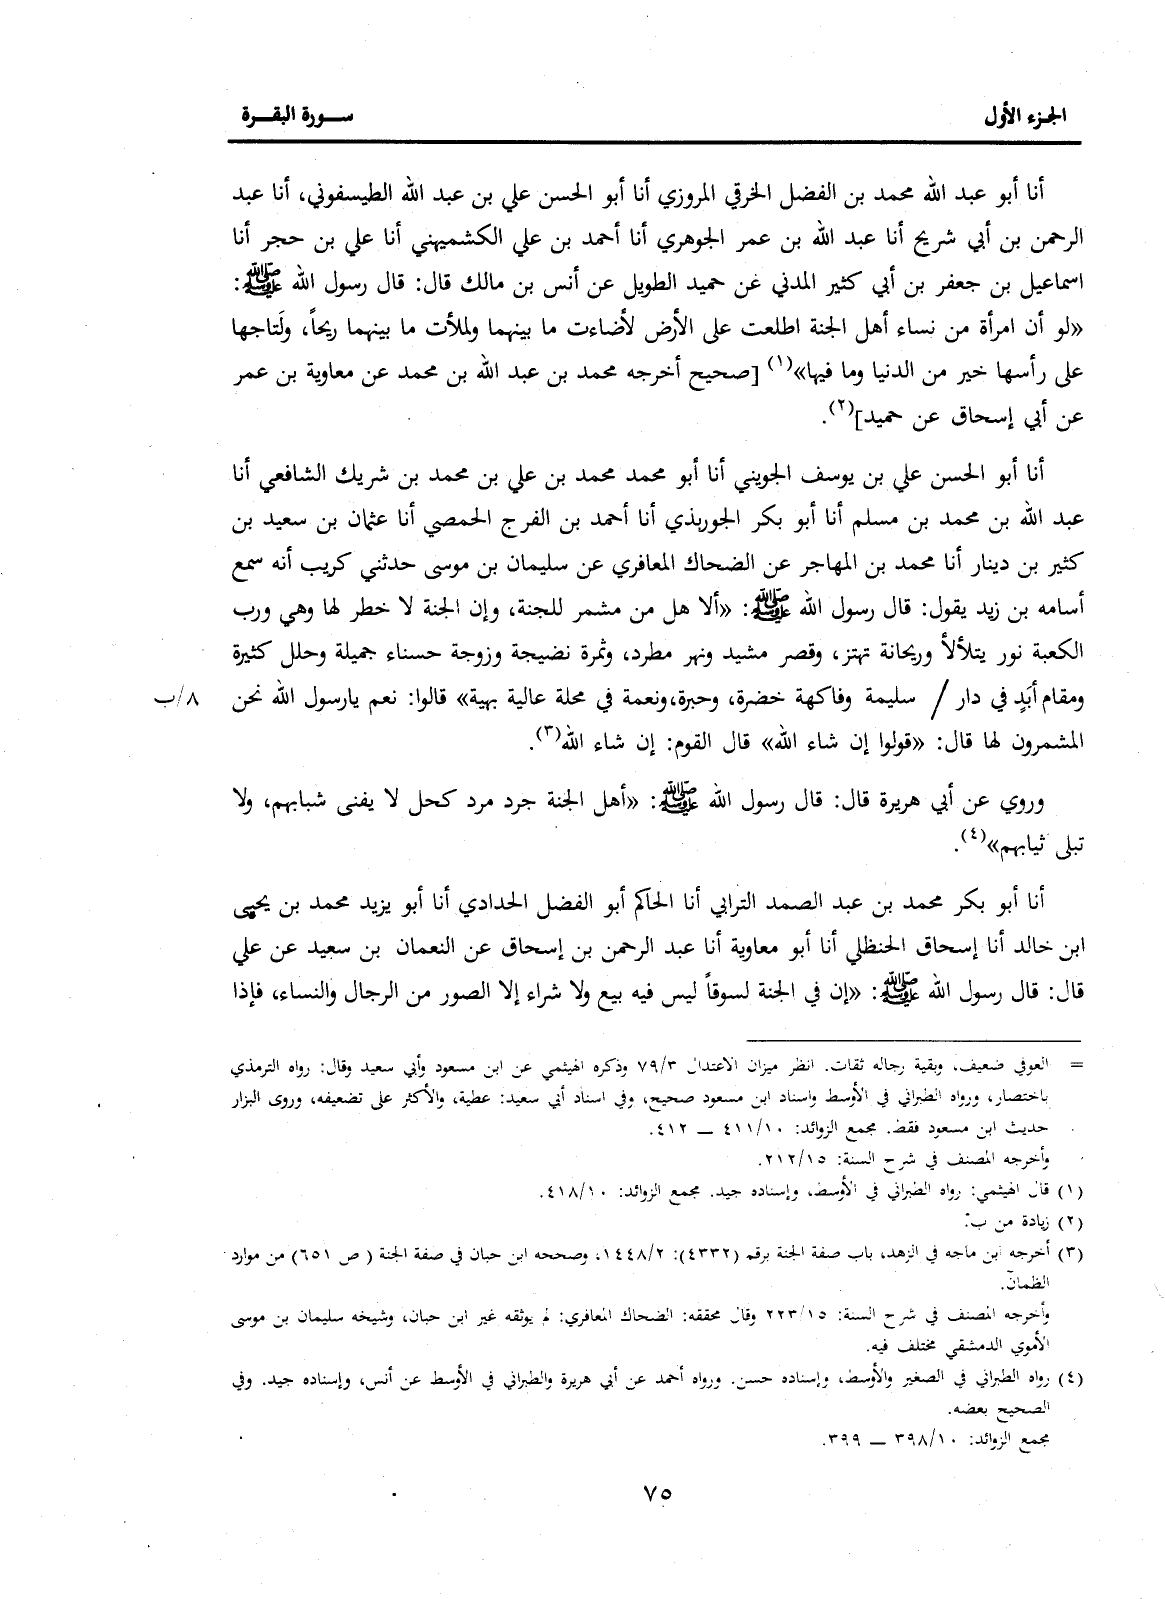 الجزء الأول
سورة البقرة
أنا أبو عبد الله محمد بن الفضل الخرقي المروزي أنا أبو الحسن علي بن عبد الله الطيسفوني، أنا عبد
الرحمن بن أبي شريح أنا عبد الله بن عمر الجوهري أنا أحمد بن علي الكشميهني أنا علي بن حجر أنا
اسماعيل بن جعفر بن أبي كثير المدني عن حميد الطويل عن أنس بن مالك قال: قال رسول الله ﷺ:
«لو أن امرأة من نساء أهل الجنة اطلعت على الأرض لأضاءت ما بينهما ولملأت ما بينهما ريحاً، ولَتاجها
على رأسها خير من الدنيا وما فيها»(١) [صحيح أخرجه محمد بن عبد الله بن محمد عن معاوية بن عمر
عن أبي إسحاق عن حميد](٢).
أنا أبو الحسن علي بن يوسف الجويني أنا أبو محمد محمد بن علي بن محمد بن شريك الشافعي أنا
عبد الله بن محمد بن مسلم أنا أبو بكر الجوربذي أنا أحمد بن الفرج الحمصي أنا عثمان بن سعيد بن
كثير بن دينار أنا محمد بن المهاجر عن الضحاك المعافري عن سليمان بن موسى حدثني كريب أنه سمع
أسامه بن زيد يقول: قال رسول الله ﷺ: «ألا هل من مشمر للجنة، وإن الجنة لا خطر لها وهي ورب
الكعبة نور يتلألأ وريحانة تهتز، وقصر مشيد ونهر مطرد، وثمرة نضيجة وزوجة حسناء جميلة وحلل كثيرة
ومقام أبَدٍ في دار / سليمة وفاكهة خضرة، وحبرة،ونعمة في محلة عالية بهية» قالوا: نعم يارسول الله نحن
٨/ب
المشمرون لها قال: «قولوا إن شاء الله» قال القوم: إن شاء الله(٣).
وروي عن أبي هريرة قال: قال رسول الله ﷺ: «أهل الجنة جرد مرد كحل لا يفنى شبابهم، ولا
تبلى ثيابهم»(٤).
أنا أبو بكر محمد بن عبد الصمد الترابي أنا الحاكم أبو الفضل الحدادي أنا أبو يزيد محمد بن يحيى
ابن خالد أنا إسحاق الحنظلي أنا أبو معاوية أنا عبد الرحمن بن إسحاق عن النعمان بن سعيد عن علي
قال: قال رسول الله ﷺ: «إن في الجنة لسوقاً ليس فيه بيع ولا شراء إلا الصور من الرجال والنساء، فإذا
= العوفي ضعيف، وبقية رجاله ثقات. انظر ميزان الاعتدال ٧٩/٣ وذكره الهيثمي عن ابن مسعود وأبي سعيد وقال: رواه الترمذي
باختصار، ورواه الطبراني في الأوسط واسناد ابن مسعود صحيح، وفي اسناد أبي سعيد: عطية، والأكثر على تضعيفه، وروى البزار
حديث ابن مسعود فقط. مجمع الزوائد: ٤١١/١٠ ــ ٤١٢.
وأخرجه المصنف في شرح السنة: ٢١٢/١٥.
(١) قال الهيثمي: رواه الطبراني في الأوسط، وإسناده جيد. مجمع الزوائد: ٤١٨/١٠.
(٢) زيادة من ب.
(٣) أخرجه ابن ماجه في الزهد، باب صفة الجنة برقم (٤٣٣٢): ١٤٤٨/٢، وصححه ابن حبان في صفة الجنة ( ص ٦٥١) من موارد
الظمآن.
وأخرجه المصنف في شرح السنة: ٢٢٣/١٥ وقال محققه: الضحاك المعافري: لم يوثقه غير ابن حبان، وشيخه سليمان بن موسى
الأموي الدمشقي مختلف فيه.
(٤) رواه الطبراني في الصغير والأوسط، وإسناده حسن. ورواه أحمد عن أبي هريرة والطبراني في الأوسط عن أنس، وإسناده جيد. وفي
الصحيح بعضه.
مجمع الزوائد: ٣٩٨/١٠ ــ ٣٩٩.
٧٥